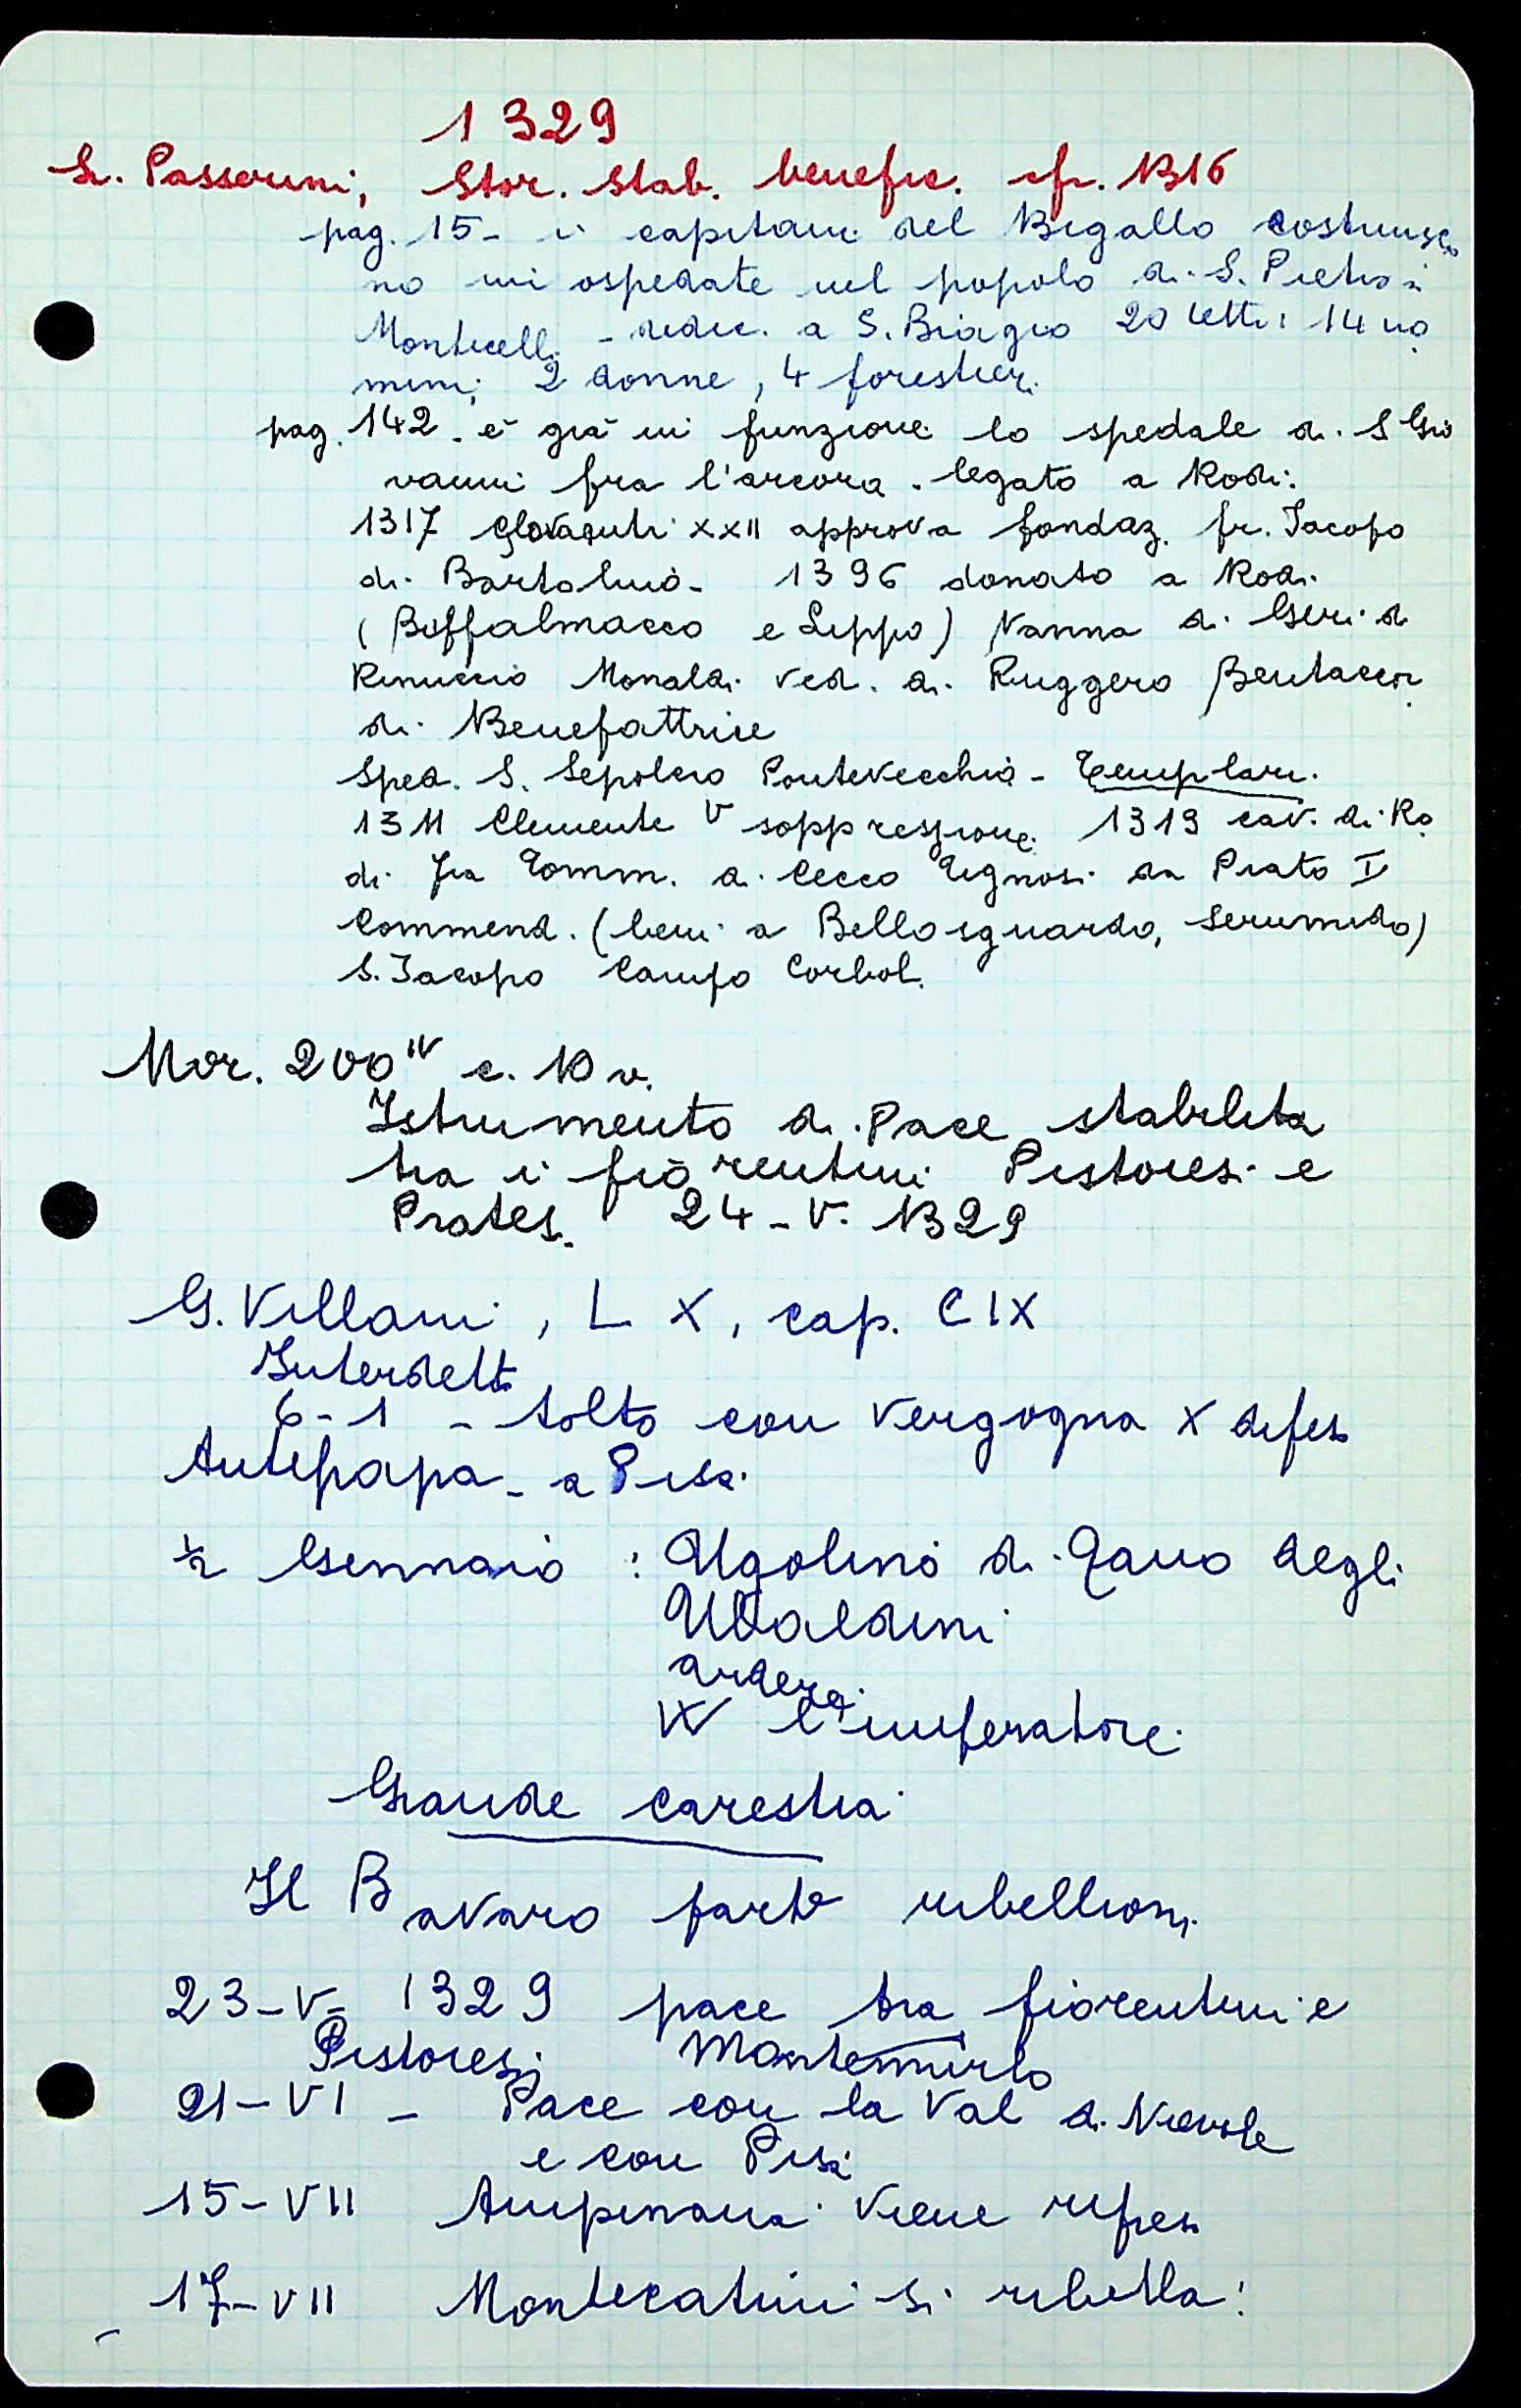 1329
L. Passerini, Stor. Stab. benefic. cfr. 1316
pag. 15 - i capitani del Bigallo costruisco
no un ospedale nel popolo di S. Pietro a
Monticelli - dedic. a S. Biagio 20 letti: 14 uo
mini; 2 donne, 4 forestieri.
pag. 142 - è già in funzione lo spedale di S Gio
vanni fra l'arcora. legato a Rodi.
1317 Giovanni XXII approva fondaz. fr. Jacopo
di Bartolino - 1396 donato a Rodi.
(Buffalmacco e Lippo) Nanna di Geri di
Rinuccio Monaldi ved. di Ruggero
di Benefattrice
Sped. S. Sepolcro Pontevecchio - Templari.
1311 Clemente V soppressione. 1319 cav. di Ro
di fra Tomm. di Cecco Tignosi da Prato I
Commend. (beni a Bellosguardo, Serumido)
S. Jacopo Campo Corbol.
Mor. 200 IV c. 10 v.
Istrumento di Pace stabilita
tra i fiorentini Pistoresi e
Pratesi 24 - V. 1329
G. Villani, L X, cap. CIX
Interdetto
6 - 1 - tolto con vergogna X difeso
Antipapa - a Pisa.
1/2 Gennaio : Ugolino di Tano degli
Ubaldini
W l'imperatore.
Grande carestia
Il Bavaro parte ribellioni
23 - V - 1329 pace tra fiorentini e
Pistoresi Montemurlo
21 - VI - Pace con la Val di Nievole
e con Pisa
15 - VII Ampinana viene ripresa
17 - VII Montecatini si ribella!